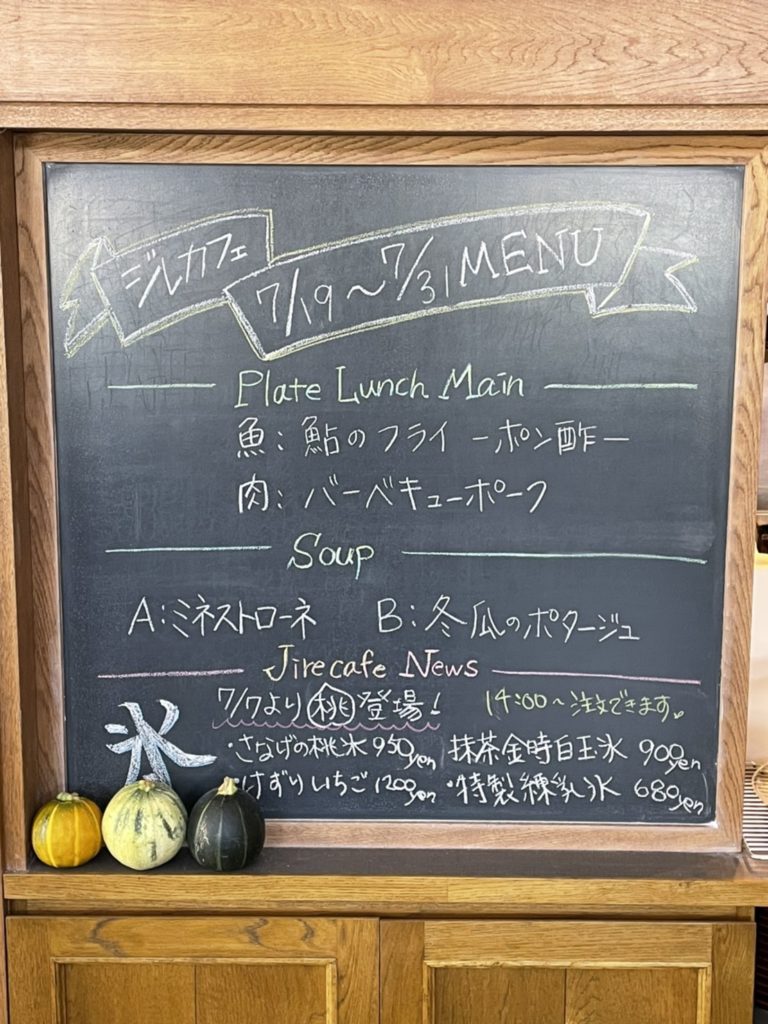 ジルカフェ
7/19～7/31 MENU
Plate Lunch Main
魚：鮎のフライ ーポン酢ー
肉：バーベキューポーク
Soup
A：ミネストローネ B：冬瓜のポタージュ
Jirecafe News
氷
7/7より桃登場！ 14:00～注文できます。
・さなげの桃氷 950yen 抹茶金時白玉氷 900yen
けずりいちご 1200yen ・特製練乳氷 680yen